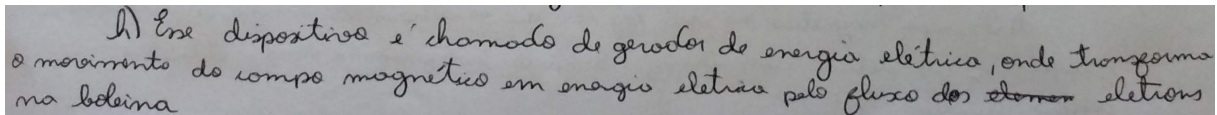 h) Esse dispositivo é chamado de gerador de energia elétrica, onde transforma
o movimento do campo magnético em energia eletrica pelo fluxo dos eletrons
na bobina